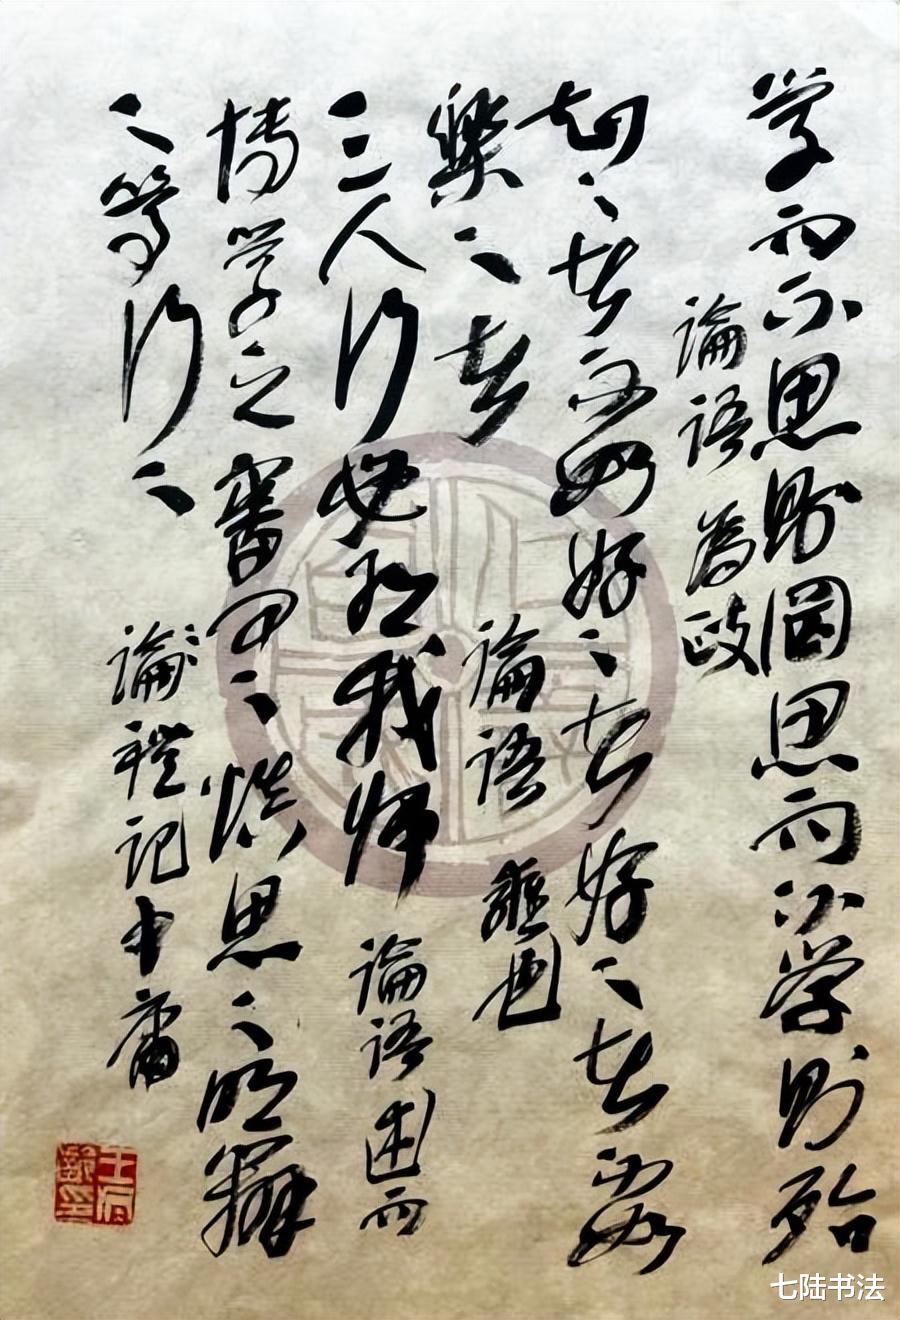 学而不思則罔思而不学則殆
論語為政
知之者不如好之者好之者不如
樂之者 論語 雍也
三人行必有我师 論語述而
博学之審问之慎思之明辨
之篤行之 論禮記中庸
七陆书法